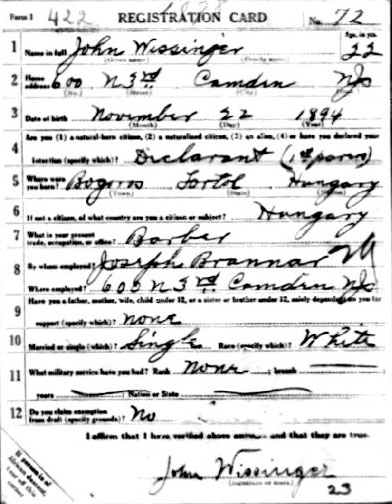 Form 1 422 1878 REGISTRATION CARD No. 72
1 Name in full John Wissinger Age, in yrs. 22
(Given name) (Family name)
2 Home address 600 N 3rd Camden NJ
(No.) (Street) (City) (State)
3 Date of birth November 22 1894
(Month) (Day) (Year)
Are you (1) a natural-born citizen, (2) a naturalized citizen, (3) an alien, (4) or have you declared your
4 intention (specify which)? Declarant (1st papers)
5 Where were you born? Bogoros Hungary
(Town) (State) (Nation)
6 If not a citizen, of what country are you a citizen or subject? Hungary
7 What is your present trade, occupation, or office? Barber
8 By whom employed? Joseph Brannar
Where employed? 600 N 3rd Camden NJ
Have you a father, mother, wife, child under 12, or a sister or brother under 12, solely dependent on you for
9 support (specify which)? none
10 Married or single (which)? Single Race (specify which)? White
11 What military service have you had? Rank None ; branch
years Nation or State
12 Do you claim exemption from draft (specify grounds)? No
I affirm that I have verified above answers and that they are true.
John Wissinger
(Signature or mark)
23
If person is of African descent, tear off this corner